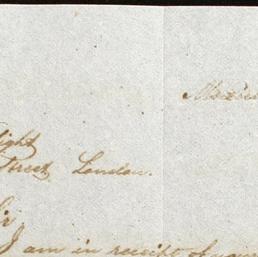 ight
Street, London.
I am in receipt of your